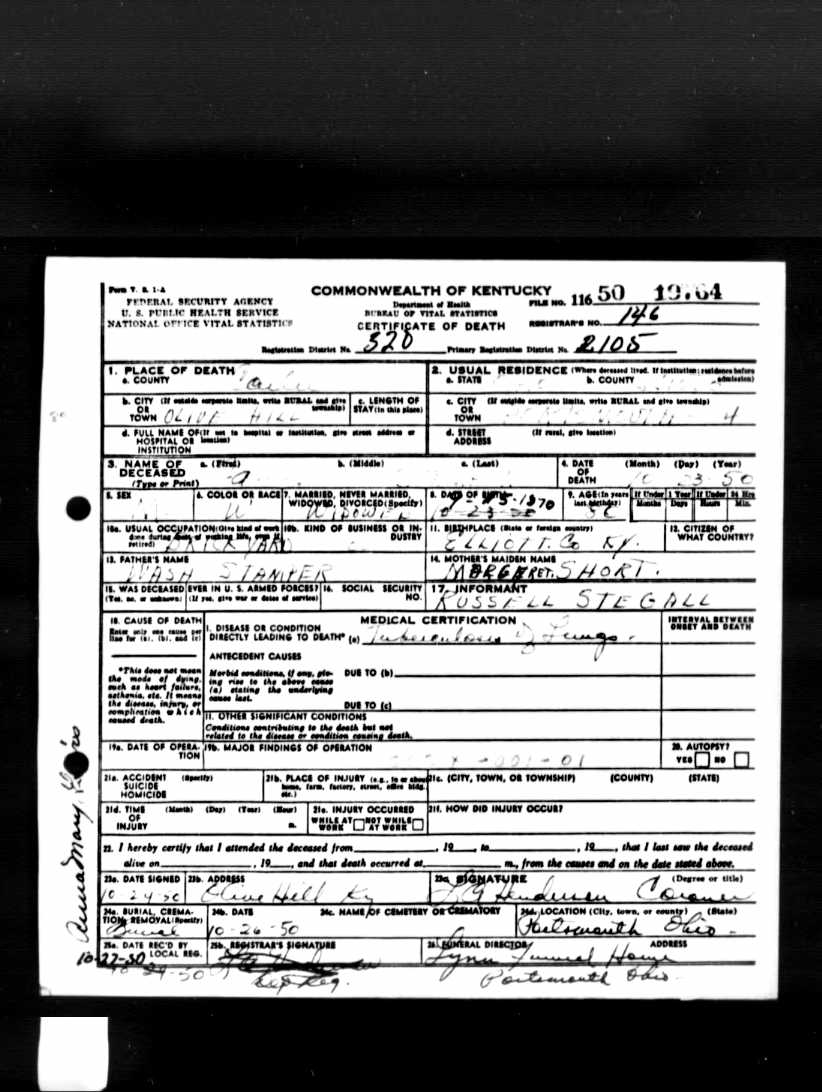 Form V. S. 1-A
FEDERAL SECURITY AGENCY
U. S. PUBLIC HEALTH SERVICE
NATIONAL OFFICE VITAL STATISTICS
COMMONWEALTH OF KENTUCKY
Department of Health
BUREAU OF VITAL STATISTICS
CERTIFICATE OF DEATH
FILE NO. 116 50
REGISTRAR'S NO. 146
Registration District No. 320 Primary Registration District No. 2105
1. PLACE OF DEATH
a. COUNTY
2. USUAL RESIDENCE (Where deceased lived. If institution: residence before admission)
a. STATE b. COUNTY
b. CITY (If outside corporate limits, write RURAL and give township)
OR
TOWN OLIVE HILL
c. LENGTH OF STAY (in this place)
c. CITY (If outside corporate limits, write RURAL and give township)
OR
TOWN
d. FULL NAME OF (If not in hospital or institution, give street address or location)
HOSPITAL OR
INSTITUTION
d. STREET ADDRESS (If rural, give location)
3. NAME OF DECEASED (Type or Print)
a. (First) b. (Middle) c. (Last)
4. DATE OF DEATH (Month) (Day) (Year)
10 23 50
5. SEX
6. COLOR OR RACE
W
7. MARRIED, NEVER MARRIED, WIDOWED, DIVORCED (Specify)
8. DATE OF BIRTH
9. AGE (In years last birthday)
If Under 1 Year Months Days
If Under 24 Hrs Hours Min.
10a. USUAL OCCUPATION (Give kind of work done during most of working life, even if retired)
BRICK YARD
10b. KIND OF BUSINESS OR INDUSTRY
11. BIRTHPLACE (State or foreign country)
ELLIOTT. Co Ky.
12. CITIZEN OF WHAT COUNTRY?
13. FATHER'S NAME
WASH STAMPER
14. MOTHER'S MAIDEN NAME
MARGARET. SHORT.
15. WAS DECEASED EVER IN U. S. ARMED FORCES?
(Yes, no, or unknown) (If yes, give war or dates of service)
16. SOCIAL SECURITY NO.
17. INFORMANT
RUSSELL STEGALL
18. CAUSE OF DEATH
Enter only one cause per line for (a), (b), and (c)
MEDICAL CERTIFICATION
INTERVAL BETWEEN ONSET AND DEATH
I. DISEASE OR CONDITION
DIRECTLY LEADING TO DEATH* (a) Tuberculosis of Lungs.
*This does not mean the mode of dying, such as heart failure, asthenia, etc. It means the disease, injury, or complication which caused death.
ANTECEDENT CAUSES
Morbid conditions, if any, giving rise to the above cause (a) stating the underlying cause last.
DUE TO (b)
DUE TO (c)
II. OTHER SIGNIFICANT CONDITIONS
Conditions contributing to the death but not related to the disease or condition causing death.
19a. DATE OF OPERATION
19b. MAJOR FINDINGS OF OPERATION
20. AUTOPSY?
YES NO
21a. ACCIDENT SUICIDE HOMICIDE (Specify)
21b. PLACE OF INJURY (e.g., in or about home, farm, factory, street, office bldg. etc.)
21c. (CITY, TOWN, OR TOWNSHIP) (COUNTY) (STATE)
21d. TIME OF INJURY (Month) (Day) (Year) (Hour) m.
21e. INJURY OCCURRED
WHILE AT WORK NOT WHILE AT WORK
21f. HOW DID INJURY OCCUR?
22. I hereby certify that I attended the deceased from , 19 , to , 19 , that I last saw the deceased
alive on , 19 , and that death occurred at m., from the causes and on the date stated above.
23a. DATE SIGNED
10-24-50
23b. ADDRESS
Olive Hill Ky
23c. SIGNATURE (Degree or title)
Henderson Coroner
24a. BURIAL, CREMATION, REMOVAL (Specify)
Burial
24b. DATE
10-26-50
24c. NAME OF CEMETERY OR CREMATORY
24d. LOCATION (City, town, or county) (State)
Portsmouth Ohio.
25a. DATE REC'D BY LOCAL REG.
10-27-50
25b. REGISTRAR'S SIGNATURE
Dep Reg.
26. FUNERAL DIRECTOR ADDRESS
Lynn Funeral Home
Portsmouth Ohio.